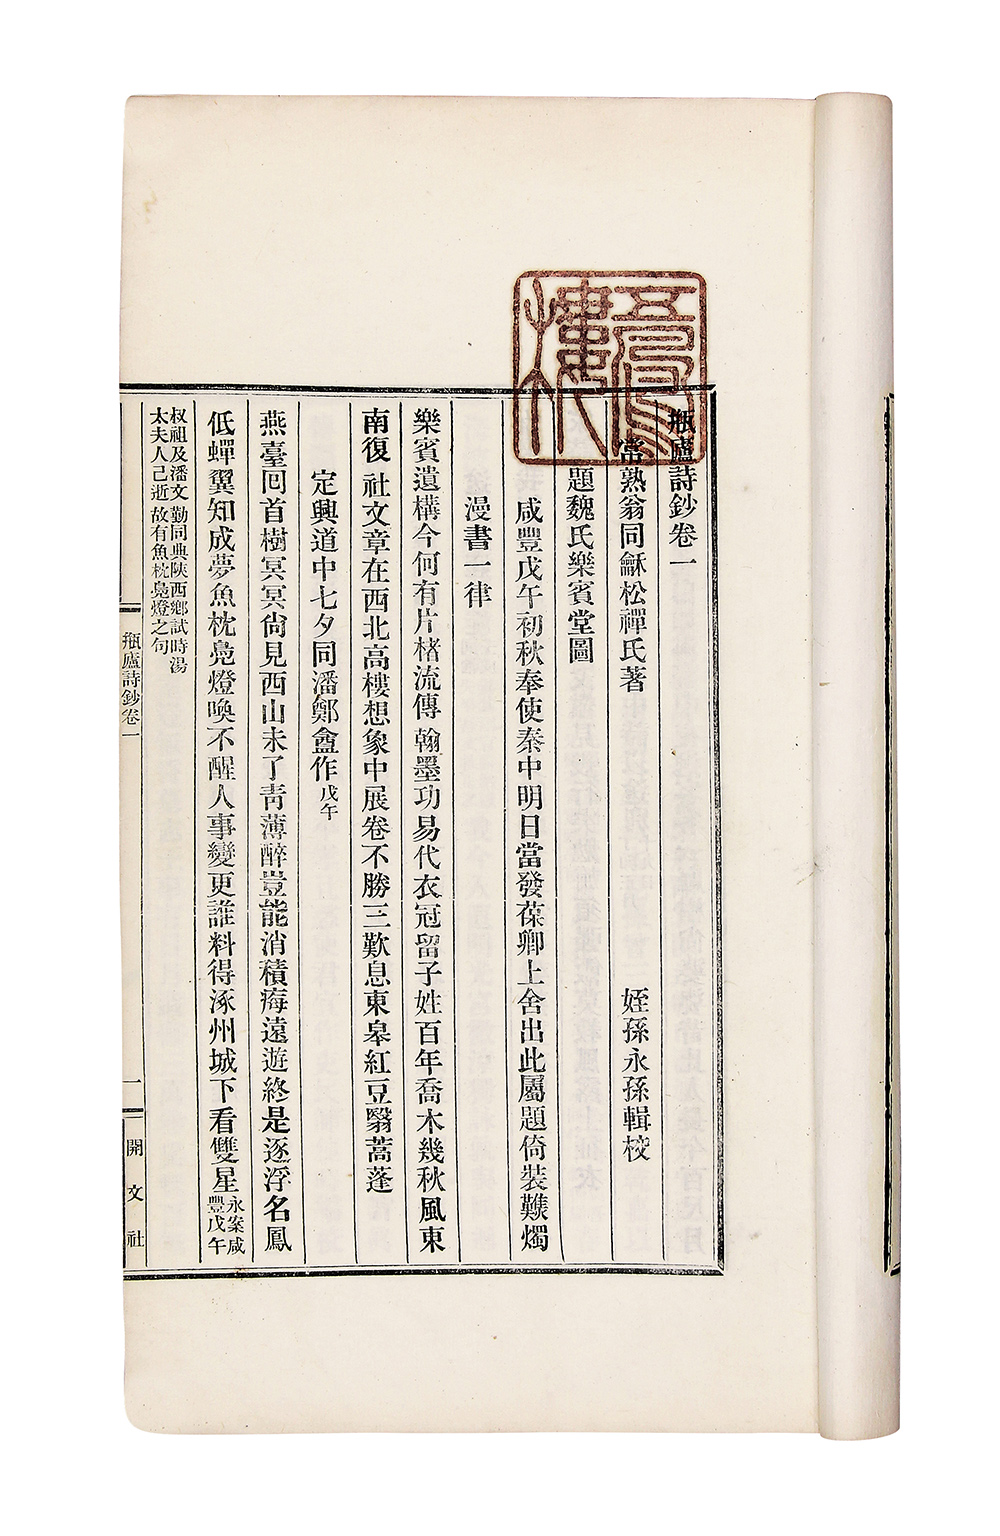 瓶廬詩鈔卷一
常熟翁同龢松禪氏著　姪孫永孫輯校
題魏氏樂賓堂圖
咸豐戊午初秋奉使秦中明日當發葆卿上舍出此屬題倚裝爇燭
漫書一律
樂賓遺構今何有片楮流傳翰墨功易代衣冠留子姓百年喬木幾秋風東
南復社文章在西北高樓想象中展卷不勝三歎息東皋紅豆翳蒿蓬
定興道中七夕同潘鄭盦作戊午
燕臺回首樹冥冥尙見西山未了靑薄醉豈能消積痗遠遊終是逐浮名鳳
低蟬翼知成夢魚枕鳧燈喚不醒人事變更誰料得涿州城下看雙星永案咸
豐戊午
叔祖及潘文勤同典陝西鄉試時湯
太夫人已逝故有魚枕鳧燈之句
瓶廬詩鈔卷一
一
開文社